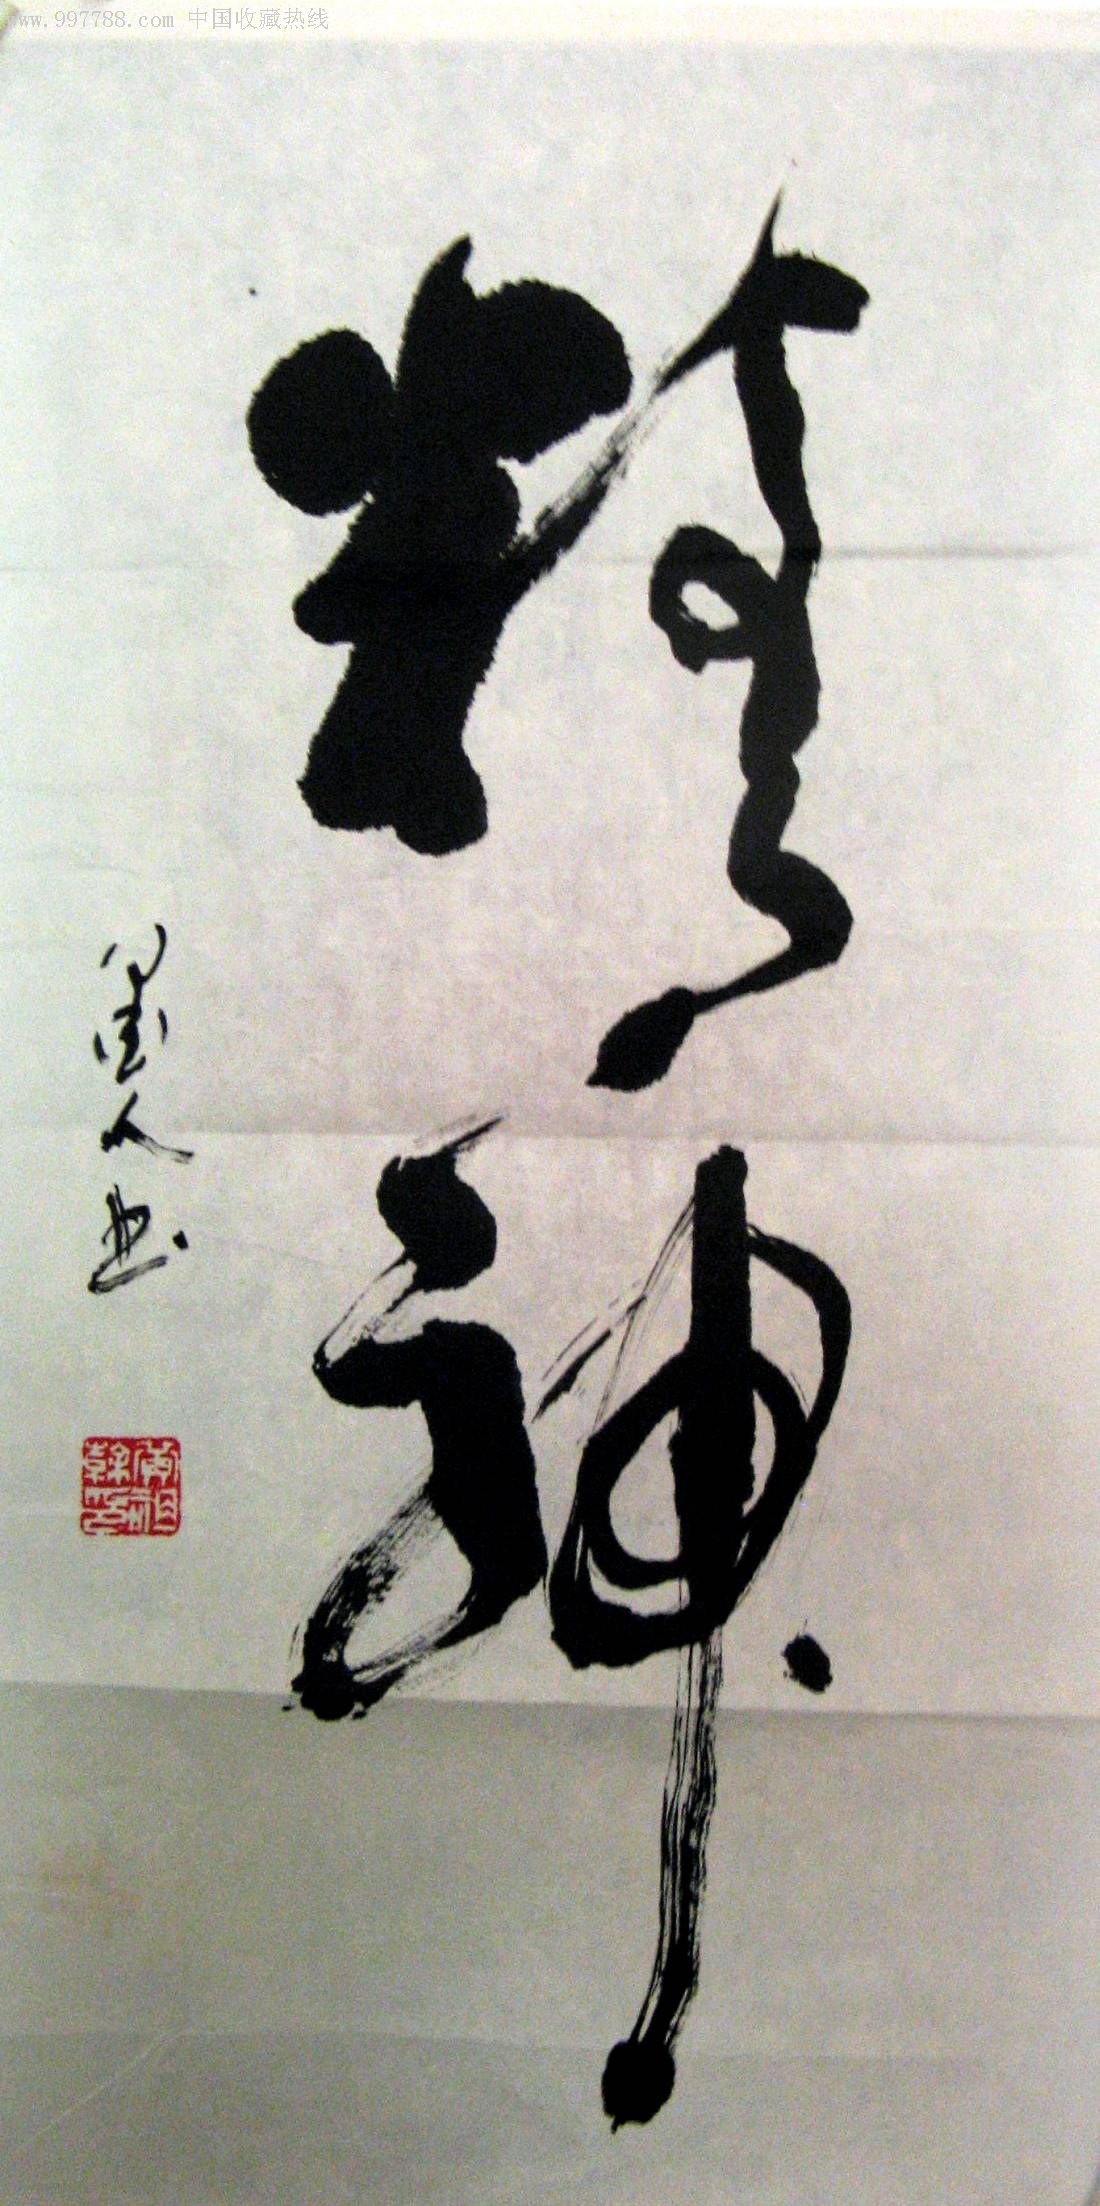 www.997788.com 中国收藏热线
精神
墨人书